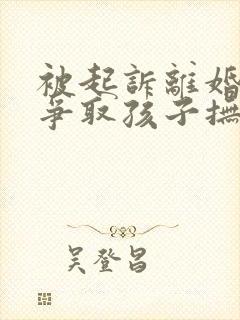 被起訴離婚
爭取孩子撫
吳登昌